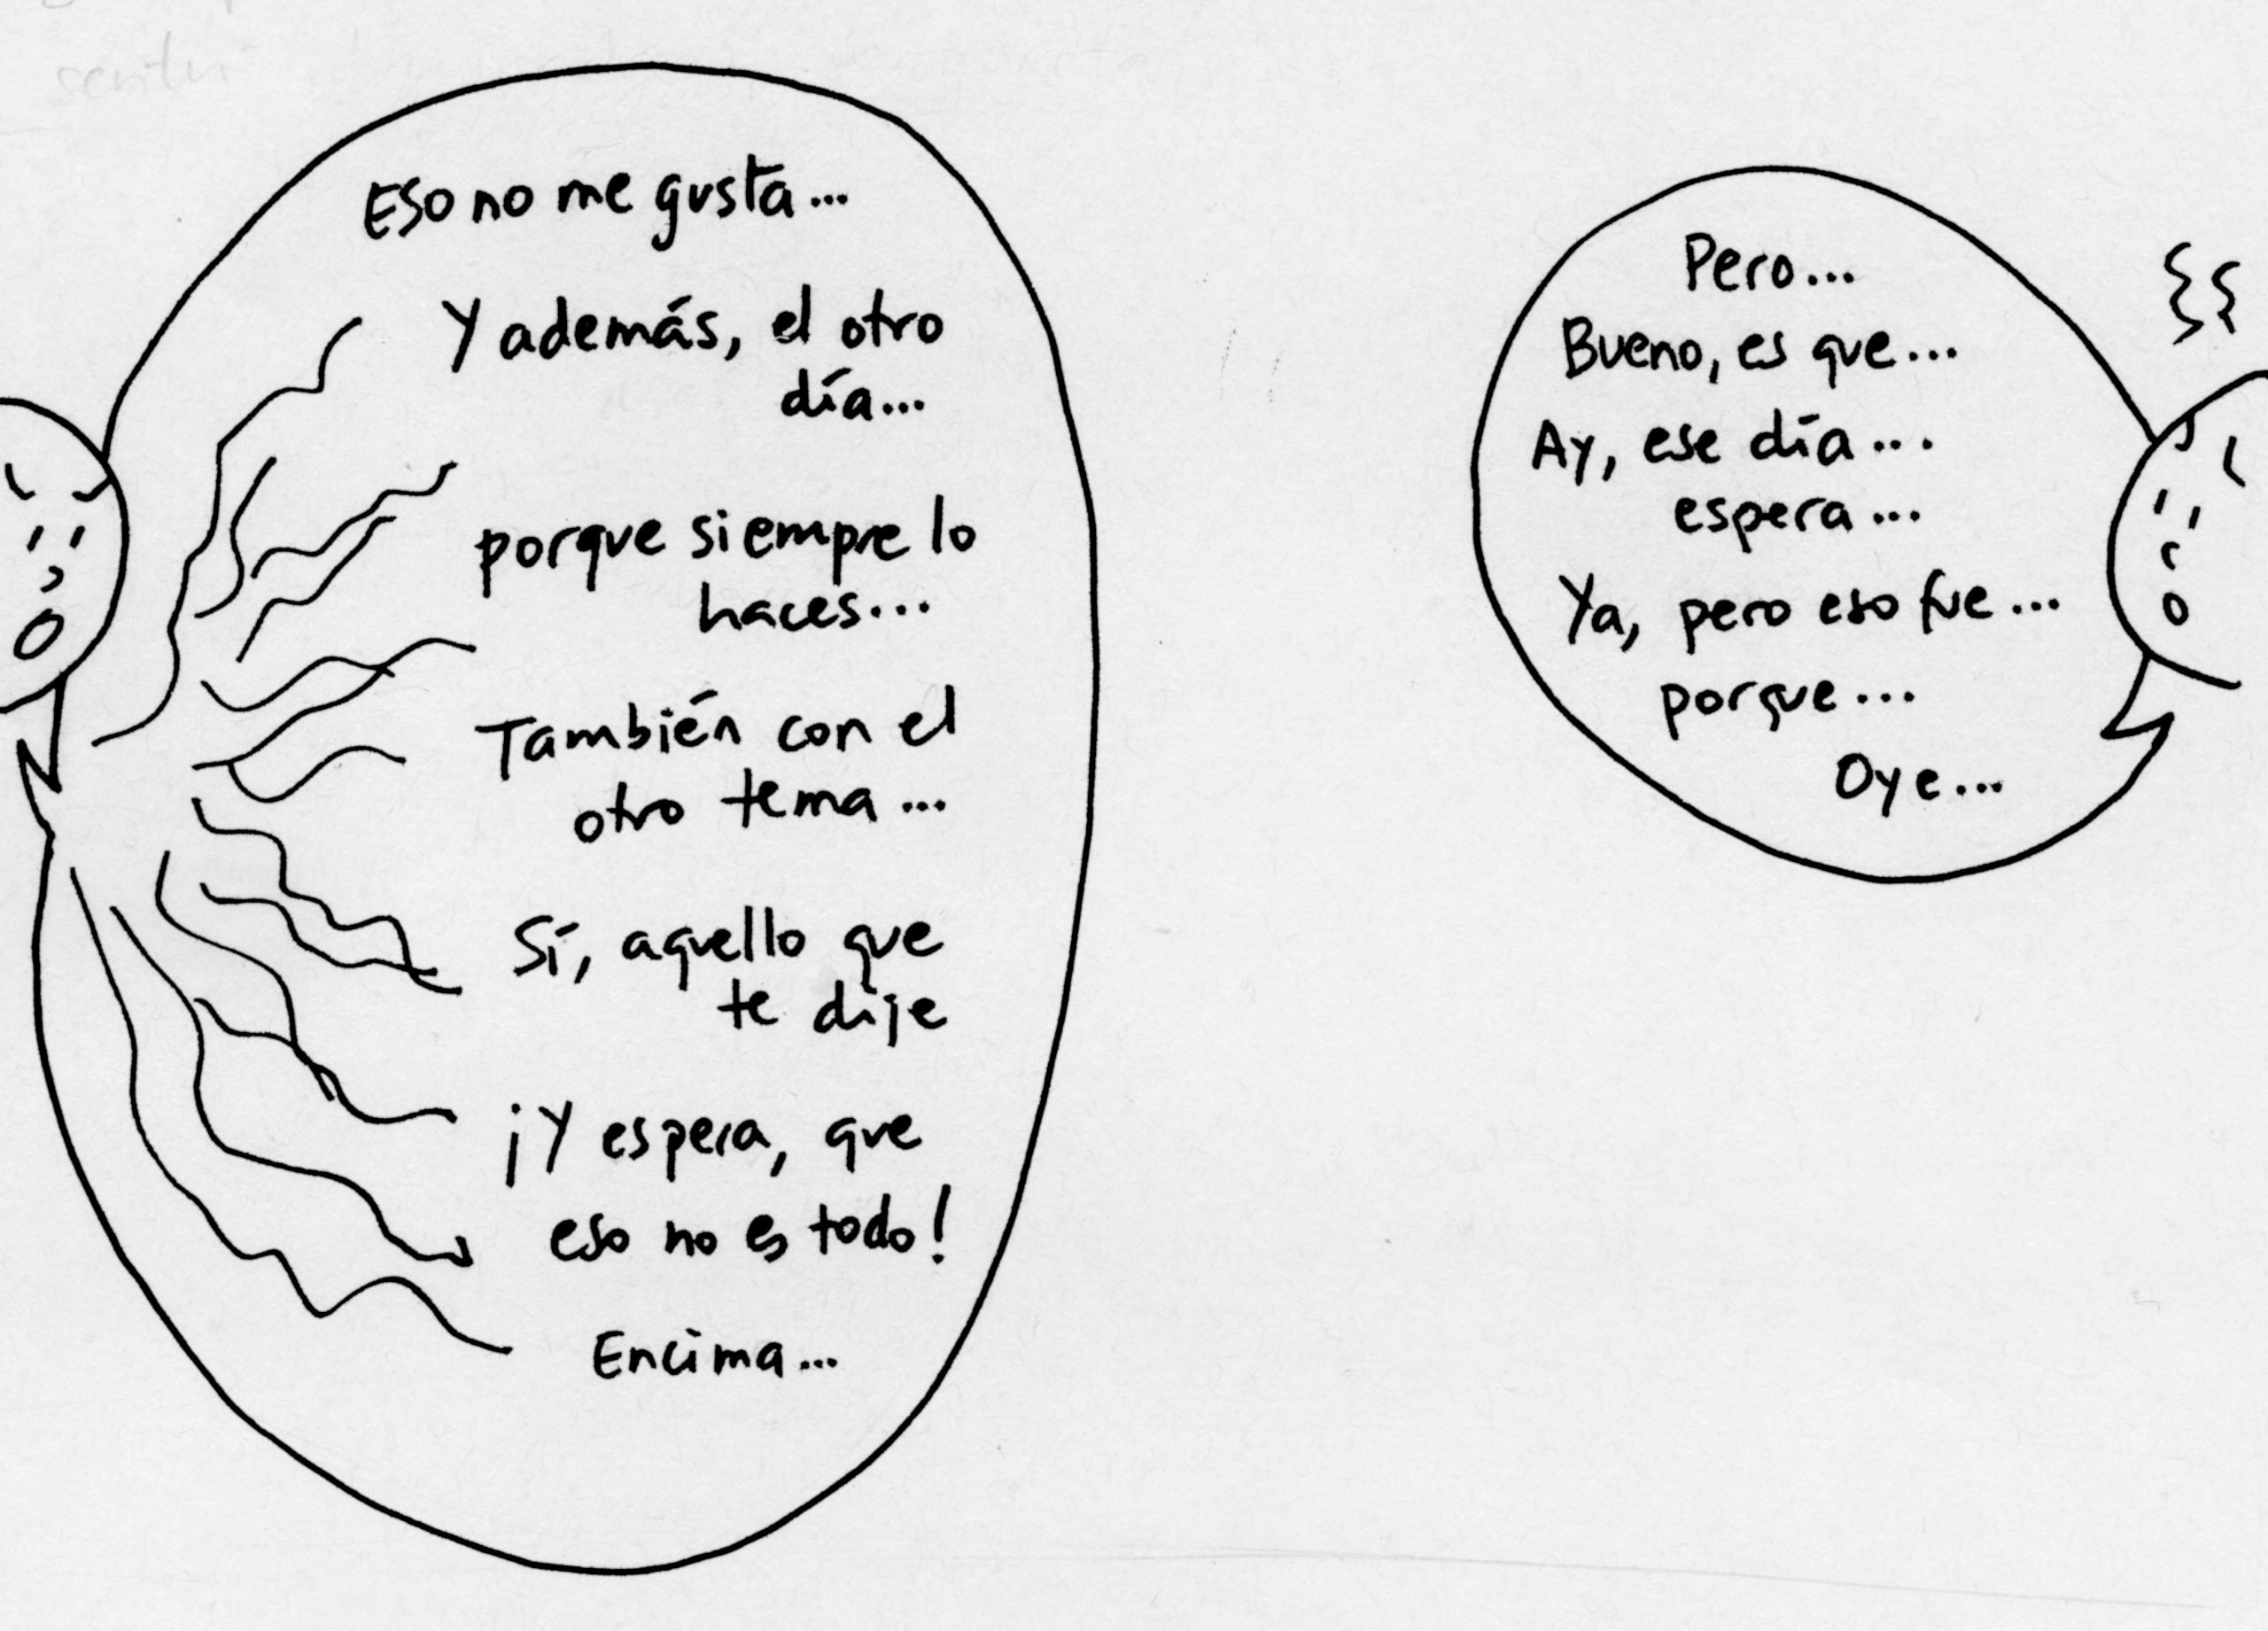 Eso no me gusta...
Y además, el otro
día...
porque siempre lo
haces...
También con el
otro tema...
Sí, aquello que
te dije
¡Y espera, que
eso no es todo!
Encima...
Pero...
Bueno, es que...
Ay, ese día...
espera...
Ya, pero eso fue...
porque...
Oye...